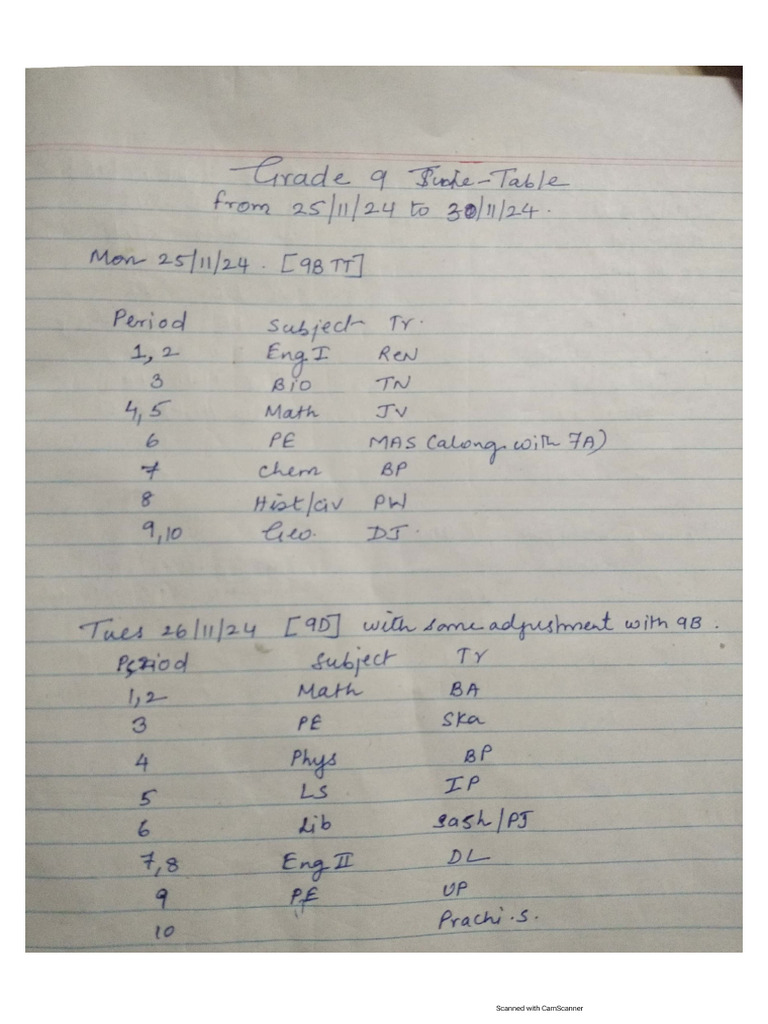 Grade 9 Time-Table
from 25/11/24 to 30/11/24.
Mon 25/11/24. [9B TT]
Period Subject Tr.
1, 2 Eng. I ReN
3 Bio TN
4, 5 Math JV
6 PE MAS (along with 7A)
7 Chem BP
8 Hist/civ PW
9, 10 Geo. DJ.
Tues 26/11/24 [9D] with some adjustment with 9B.
Period Subject Tr
1, 2 Math BA
3 PE Ska
4 Phys BP
5 LS IP
6 Lib Sash/PJ
7, 8 Eng II DL
9 PE UP
10 Prachi. S.
Scanned with CamScanner